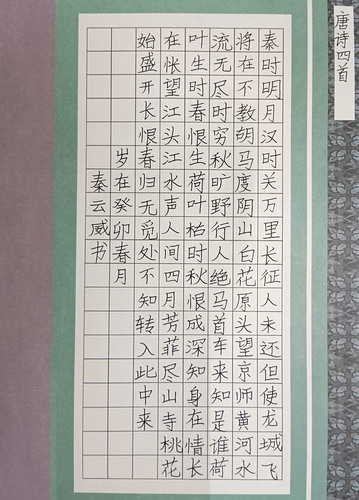 唐诗四首
秦时明月汉时关万里长征人未还但使龙城飞
将在不教胡马度阴山白花原头望京师黄河水
流无尽时穷秋旷野行人绝马首车来知是谁荷
叶生时春恨生荷叶枯时秋恨成深知身在情长
在怅望江头江水声人间四月芳菲尽山寺桃花
始盛开长恨春归无觅处不知转入此中来
岁在癸卯春月
秦云威书